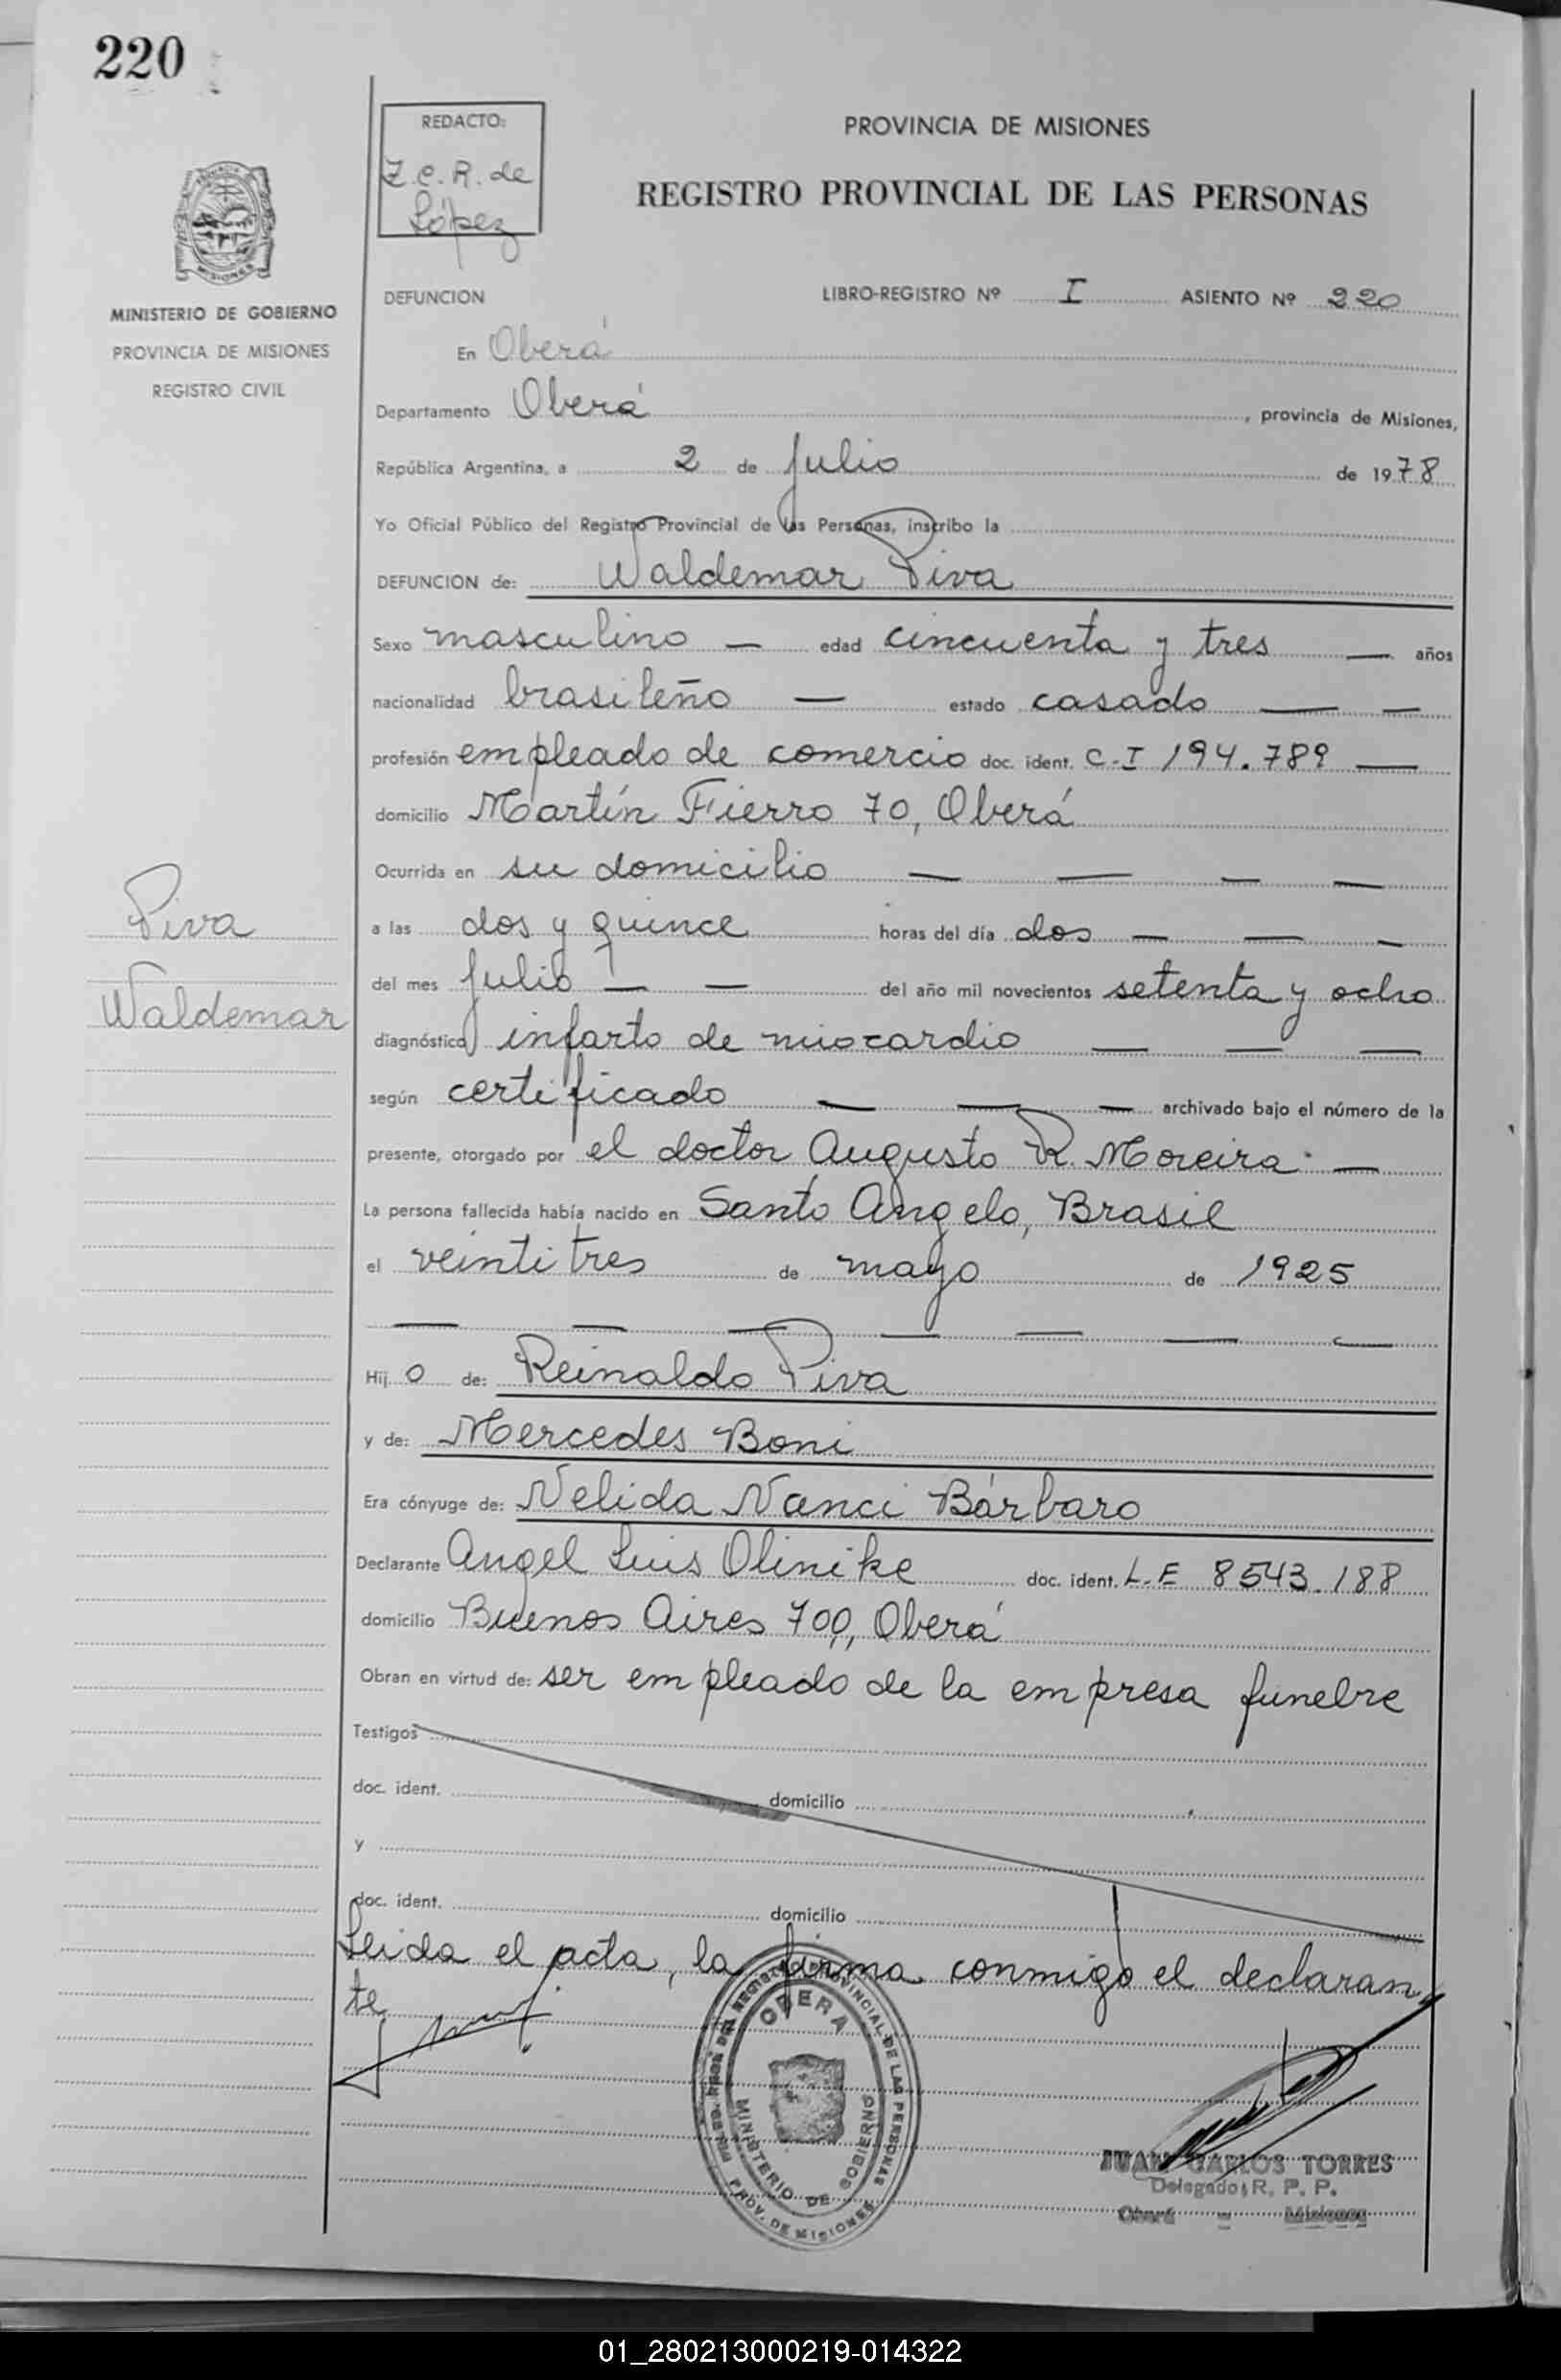 220
REDACTO:
Z.C.R. de
López
PROVINCIA DE MISIONES
REGISTRO PROVINCIAL DE LAS PERSONAS
MISIONES
MINISTERIO DE GOBIERNO
PROVINCIA DE MISIONES
REGISTRO CIVIL
DEFUNCION LIBRO-REGISTRO Nº I ASIENTO Nº 220
En Oberá
Departamento Oberá, provincia de Misiones,
República Argentina, a 2 de julio de 1978
Yo Oficial Público del Registro Provincial de las Personas, inscribo la
DEFUNCION de: Waldemar Piva
Sexo masculino — edad cincuenta y tres — años
nacionalidad brasileño — estado casado — —
profesión empleado de comercio doc. ident. C.I 194.789 —
domicilio Martín Fierro 70, Oberá
Ocurrida en su domicilio — — — —
Piva
Waldemar
a las dos y quince horas del día dos — — —
del mes julio — — del año mil novecientos setenta y ocho
diagnóstico infarto de miocardio — — —
según certificado — — — archivado bajo el número de la
presente, otorgado por el doctor Augusto R. Moreira. —
La persona fallecida había nacido en Santo Angelo, Brasil
el veintitres de mayo de 1925
— — — — — — —
Hijo de: Reinaldo Piva
y de: Mercedes Boni
Era cónyuge de: Nelida Nanci Bárbaro
Declarante Angel Luis Olinike doc. ident. L.E 8543.188
domicilio Buenos Aires 700, Oberá
Obran en virtud de: ser empleado de la empresa funebre
Testigos
doc. ident. domicilio
y
doc. ident. domicilio
Leida el acta, la firma conmigo el declaran
te
OBERA
MINISTERIO DE GOBIERNO
PROVINCIAL DE LAS PERSONAS
PROV. DE MISIONES
JUAN CARLOS TORRES
Delegado R. P. P.
Oberá - Misiones
01_280213000219-014322